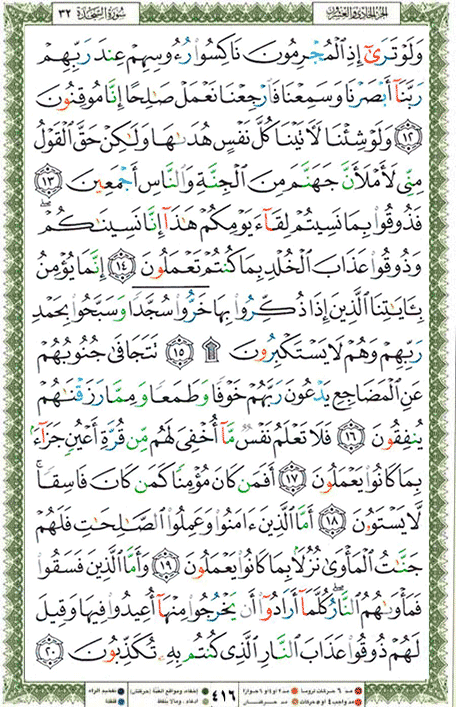 سُورَةُ السَّجْدَةِ ٣٢ الجزء الحادي والعشرين
وَلَوْ تَرَىٰٓ إِذِ ٱلْمُجْرِمُونَ نَاكِسُوا۟ رُءُوسِهِمْ عِندَ رَبِّهِمْ
رَبَّنَآ أَبْصَرْنَا وَسَمِعْنَا فَٱرْجِعْنَا نَعْمَلْ صَـٰلِحًا إِنَّا مُوقِنُونَ
١٢ وَلَوْ شِئْنَا لَـَٔاتَيْنَا كُلَّ نَفْسٍ هُدَىٰهَا وَلَـٰكِنْ حَقَّ ٱلْقَوْلُ
مِنِّى لَأَمْلَأَنَّ جَهَنَّمَ مِنَ ٱلْجِنَّةِ وَٱلنَّاسِ أَجْمَعِينَ ١٣
فَذُوقُوا۟ بِمَا نَسِيتُمْ لِقَآءَ يَوْمِكُمْ هَـٰذَآ إِنَّا نَسِينَـٰكُمْ ۖ
وَذُوقُوا۟ عَذَابَ ٱلْخُلْدِ بِمَا كُنتُمْ تَعْمَلُونَ ١٤ إِنَّمَا يُؤْمِنُ
بِـَٔايَـٰتِنَا ٱلَّذِينَ إِذَا ذُكِّرُوا۟ بِهَا خَرُّوا۟ سُجَّدًا وَسَبَّحُوا۟ بِحَمْدِ
رَبِّهِمْ وَهُمْ لَا يَسْتَكْبِرُونَ ۩ ١٥ تَتَجَافَىٰ جُنُوبُهُمْ
عَنِ ٱلْمَضَاجِعِ يَدْعُونَ رَبَّهُمْ خَوْفًا وَطَمَعًا وَمِمَّا رَزَقْنَـٰهُمْ
يُنفِقُونَ ١٦ فَلَا تَعْلَمُ نَفْسٌ مَّآ أُخْفِىَ لَهُم مِّن قُرَّةِ أَعْيُنٍ جَزَآءًۢ
بِمَا كَانُوا۟ يَعْمَلُونَ ١٧ أَفَمَن كَانَ مُؤْمِنًا كَمَن كَانَ فَاسِقًا ۚ
لَّا يَسْتَوُۥنَ ١٨ أَمَّا ٱلَّذِينَ ءَامَنُوا۟ وَعَمِلُوا۟ ٱلصَّـٰلِحَـٰتِ فَلَهُمْ
جَنَّـٰتُ ٱلْمَأْوَىٰ نُزُلًۢا بِمَا كَانُوا۟ يَعْمَلُونَ ١٩ وَأَمَّا ٱلَّذِينَ فَسَقُوا۟
فَمَأْوَىٰهُمُ ٱلنَّارُ ۖ كُلَّمَآ أَرَادُوٓا۟ أَن يَخْرُجُوا۟ مِنْهَآ أُعِيدُوا۟ فِيهَا وَقِيلَ
لَهُمْ ذُوقُوا۟ عَذَابَ ٱلنَّارِ ٱلَّذِى كُنتُم بِهِۦ تُكَذِّبُونَ ٢٠
مد ٦ حركات لزوماً مد ٢ أو ٤ أو ٦ جوازاً ٤١٦ إخفاء، ومواقع الغنّة (حركتان) تفخيم الراء
مد واجب ٤ أو ٥ حركات مد حركتان إدغام، وما لا يلفظ قلقلة